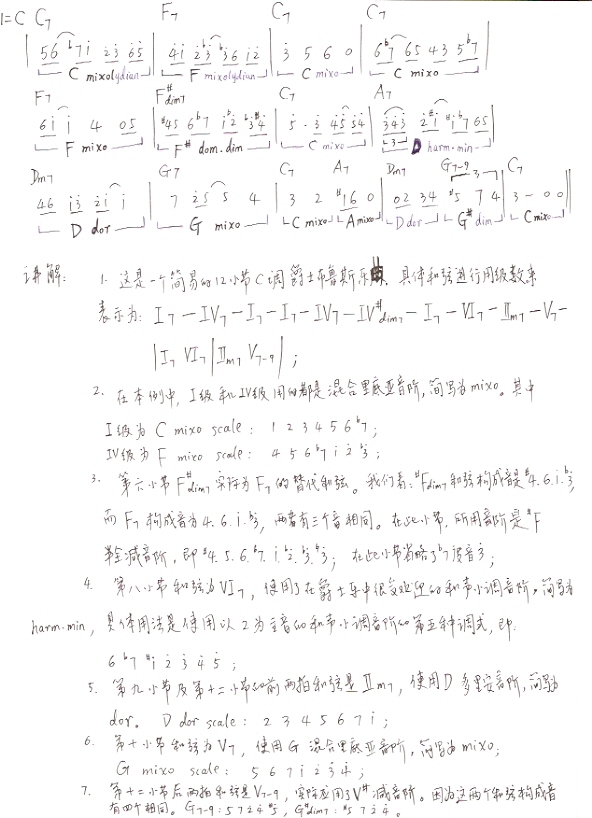 1=C C7 F7 C7 C7
56 b7i 23 65 | 4i 2b3 b36 i2 | 3 5 6 0 | 6b7 65 43 5b7
C mixolydian F mixolydian C mixo C mixo
F7 F#dim7 C7 A7
6i i 4 05 | #45 6b7 ib2 b3#4 | 5·3 45 54 | 343 2#i #ib765
F mixo F# dom.dim C mixo 3 D harm.min
Dm7 G7 C7 A7 Dm7 G7-9 3 C7
46 i3 2i i | 7 25 5 4 | 3 2 #16 0 | 02 34 #5 7 4 | 3 - 0 0
D dor G mixo C mixo A mixo D dor G# dim C mixo
讲解: 1. 这是一个简易的12小节C调爵士布鲁斯乐曲. 具体和弦进行用级数来
表示为: I7—IV7—I7—I7—IV7—IV#dim7—I7—VI7—IIm7—V7—
|I7 VI7|IIm7 V7-9| ;
2. 在本例中, I级和IV级用的都是混合里底亚音阶, 简写为mixo。其中
I级为 C mixo scale: 1 2 3 4 5 6 b7 ;
IV级为 F mixo scale: 4 5 6 b7 i 2 b3 ;
3. 第六小节F#dim7实际为F7的替代和弦。我们看: #Fdim7和弦构成音是#4. 6. i. b3,
而F7构成音为4. 6. i. b3, 两者有三个音相同。在此小节, 所用音阶是#F
半全减音阶, 即#4. 5. 6. b7. i. b2. b3. b3; 在此小节省略了b7没音3;
4. 第八小节和弦为VI7, 使用了在爵士乐中很多处理的和声小调音阶, 简写为
harm.min, 具体用法是使用以2为主音的和声小调音阶的第五种调式, 即:
6 b7 #i 2 3 4 5 ;
5. 第九小节及第十二小节的前两拍和弦是IIm7, 使用D多里安音阶, 简写为
dor。 D dor scale: 2 3 4 5 6 7 i ;
6. 第十小节和弦为V7, 使用G混合里底亚音阶, 简写为mixo;
G mixo scale: 5 6 7 i 2 3 4 ;
7. 第十二小节后两拍和弦是V7-9, 实际应用了V#减音阶。因为这两个和弦构成音
有四个相同。G7-9: 5 7 2 4 #5, G#dim7: #5 7 2 4 。